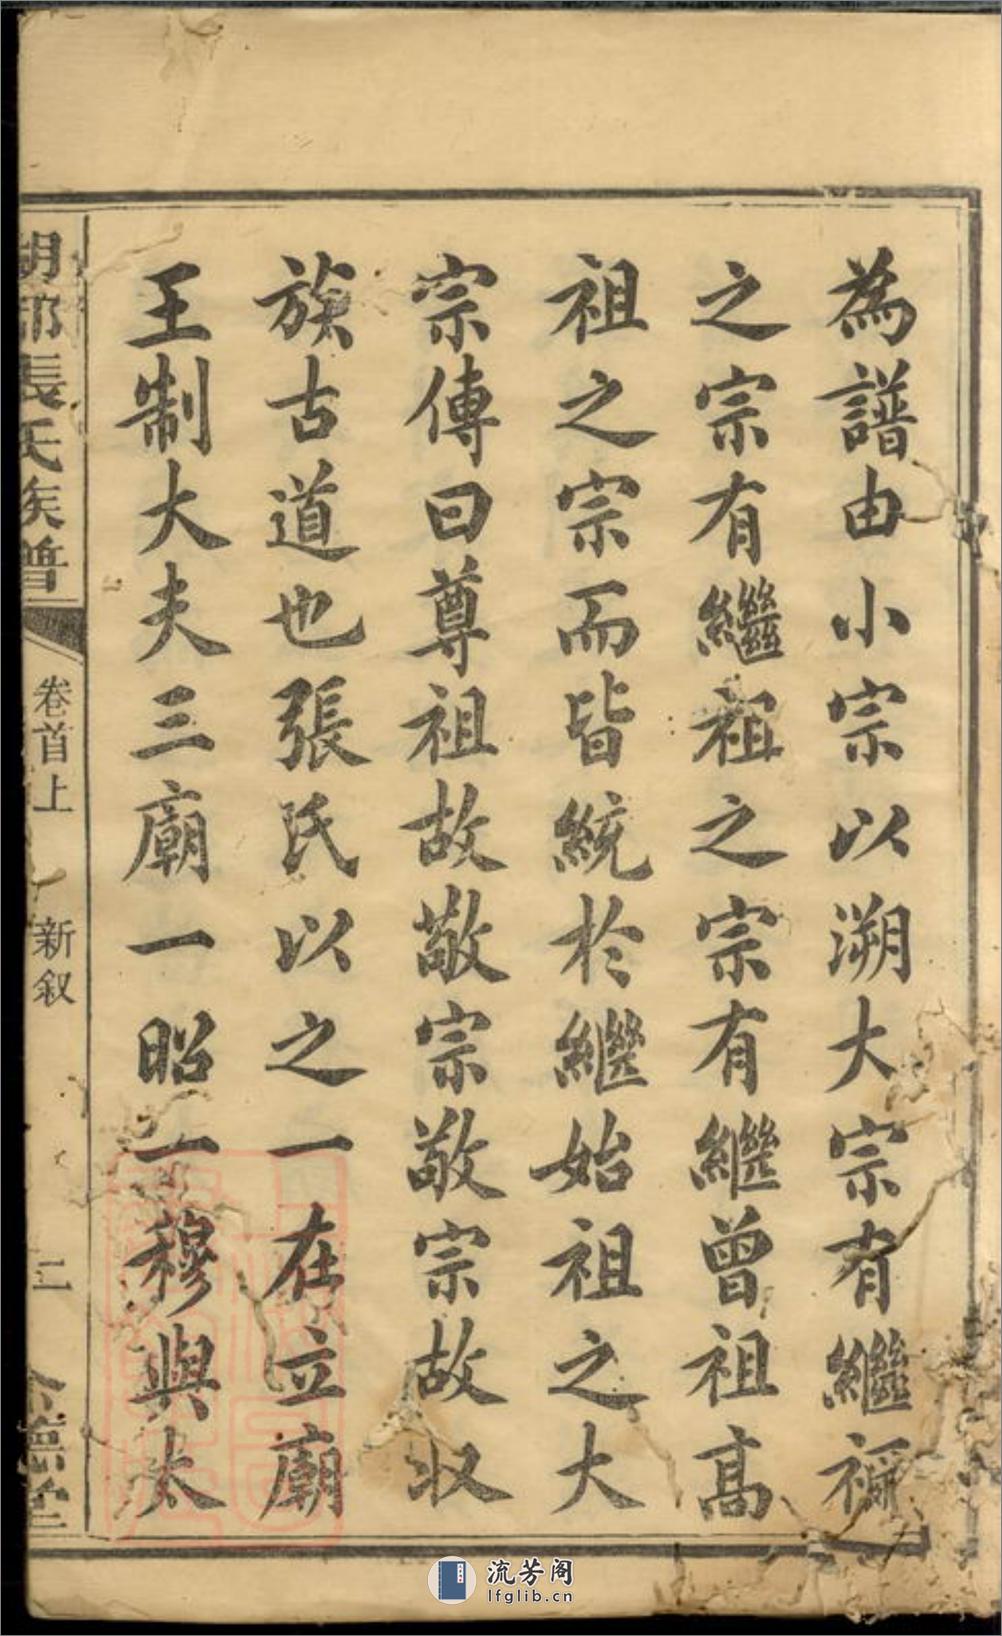 為譜由小宗以溯大宗有繼禰
之宗有繼祖之宗有繼曾祖高
祖之宗而皆統於繼始祖之大
宗傳曰尊祖故敬宗敬宗故収
族古道也張氏以之一在立廟
王制大夫三廟一昭一穆與太
胡部張氏族譜
卷首上
新叙
二
德堂
流芳阁
lfglib.cn